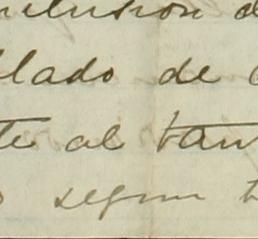 nclusion d
llado de
te al tan
segun t